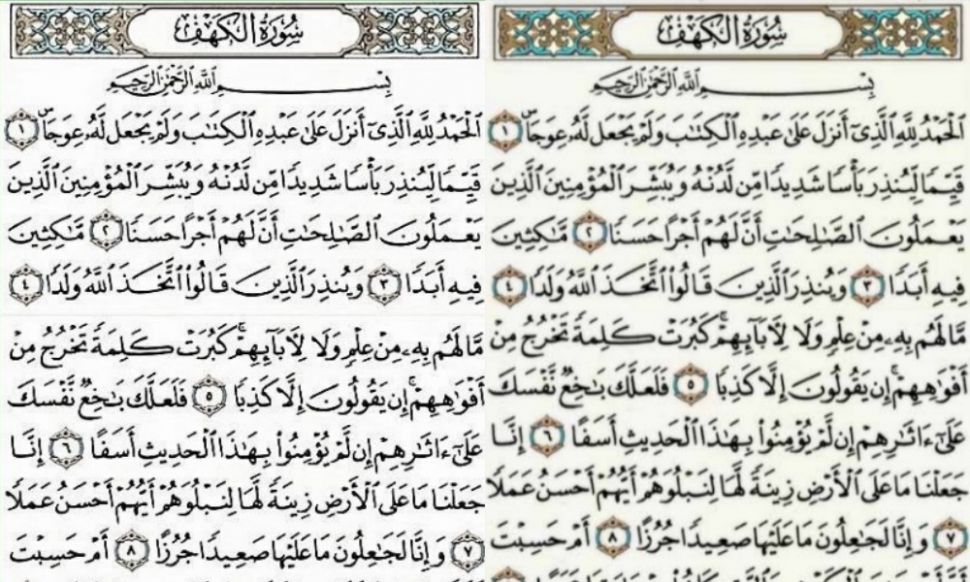 سُورَةُ الْكَهْفِ
بِسْمِ اللَّهِ الرَّحْمَٰنِ الرَّحِيمِ
ٱلْحَمْدُ لِلَّهِ ٱلَّذِىٓ أَنزَلَ عَلَىٰ عَبْدِهِ ٱلْكِتَـٰبَ وَلَمْ يَجْعَل لَّهُۥ عِوَجَاۜ ١
قَيِّمًا لِّيُنذِرَ بَأْسًا شَدِيدًا مِّن لَّدُنْهُ وَيُبَشِّرَ ٱلْمُؤْمِنِينَ ٱلَّذِينَ
يَعْمَلُونَ ٱلصَّـٰلِحَـٰتِ أَنَّ لَهُمْ أَجْرًا حَسَنًا ٢ مَّـٰكِثِينَ
فِيهِ أَبَدًا ٣ وَيُنذِرَ ٱلَّذِينَ قَالُوا۟ ٱتَّخَذَ ٱللَّهُ وَلَدًا ٤
مَّا لَهُم بِهِۦ مِنْ عِلْمٍ وَلَا لِـَٔابَآئِهِمْ ۚ كَبُرَتْ كَلِمَةً تَخْرُجُ مِنْ
أَفْوَٰهِهِمْ ۚ إِن يَقُولُونَ إِلَّا كَذِبًا ٥ فَلَعَلَّكَ بَـٰخِعٌ نَّفْسَكَ
عَلَىٰٓ ءَاثَـٰرِهِمْ إِن لَّمْ يُؤْمِنُوا۟ بِهَـٰذَا ٱلْحَدِيثِ أَسَفًا ٦ إِنَّا
جَعَلْنَا مَا عَلَى ٱلْأَرْضِ زِينَةً لَّهَا لِنَبْلُوَهُمْ أَيُّهُمْ أَحْسَنُ عَمَلًا
٧ وَإِنَّا لَجَـٰعِلُونَ مَا عَلَيْهَا صَعِيدًا جُرُزًا ٨ أَمْ حَسِبْتَ
سُورَةُ الْكَهْفِ
بِسْمِ اللَّهِ الرَّحْمَٰنِ الرَّحِيمِ
ٱلْحَمْدُ لِلَّهِ ٱلَّذِىٓ أَنزَلَ عَلَىٰ عَبْدِهِ ٱلْكِتَـٰبَ وَلَمْ يَجْعَل لَّهُۥ عِوَجَاۜ ١
قَيِّمًا لِّيُنذِرَ بَأْسًا شَدِيدًا مِّن لَّدُنْهُ وَيُبَشِّرَ ٱلْمُؤْمِنِينَ ٱلَّذِينَ
يَعْمَلُونَ ٱلصَّـٰلِحَـٰتِ أَنَّ لَهُمْ أَجْرًا حَسَنًا ٢ مَّـٰكِثِينَ
فِيهِ أَبَدًا ٣ وَيُنذِرَ ٱلَّذِينَ قَالُوا۟ ٱتَّخَذَ ٱللَّهُ وَلَدًا ٤
مَّا لَهُم بِهِۦ مِنْ عِلْمٍ وَلَا لِـَٔابَآئِهِمْ ۚ كَبُرَتْ كَلِمَةً تَخْرُجُ مِنْ
أَفْوَٰهِهِمْ ۚ إِن يَقُولُونَ إِلَّا كَذِبًا ٥ فَلَعَلَّكَ بَـٰخِعٌ نَّفْسَكَ
عَلَىٰٓ ءَاثَـٰرِهِمْ إِن لَّمْ يُؤْمِنُوا۟ بِهَـٰذَا ٱلْحَدِيثِ أَسَفًا ٦ إِنَّا
جَعَلْنَا مَا عَلَى ٱلْأَرْضِ زِينَةً لَّهَا لِنَبْلُوَهُمْ أَيُّهُمْ أَحْسَنُ عَمَلًا
٧ وَإِنَّا لَجَـٰعِلُونَ مَا عَلَيْهَا صَعِيدًا جُرُزًا ٨ أَمْ حَسِبْتَ